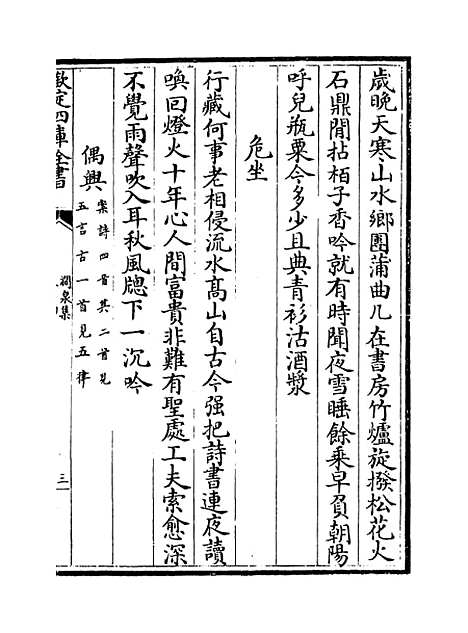 歲晚天寒山水鄉團蒲曲几在書房竹爐旋撥松花火
石鼎閒拈栢子香吟就有時聞夜雪睡餘乗早負朝陽
呼兒瓶粟今多少且典青衫沽酒漿
危坐
行藏何事老相侵流水髙山自古今强把詩書連夜讀
喚回燈火十年心人間富貴非難有聖處工夫索愈深
不覺雨聲吹入耳秋風牕下一沉吟
偶興案詩四首其二首見
五言古一首見五律
欽定四庫全書
澗泉集
三